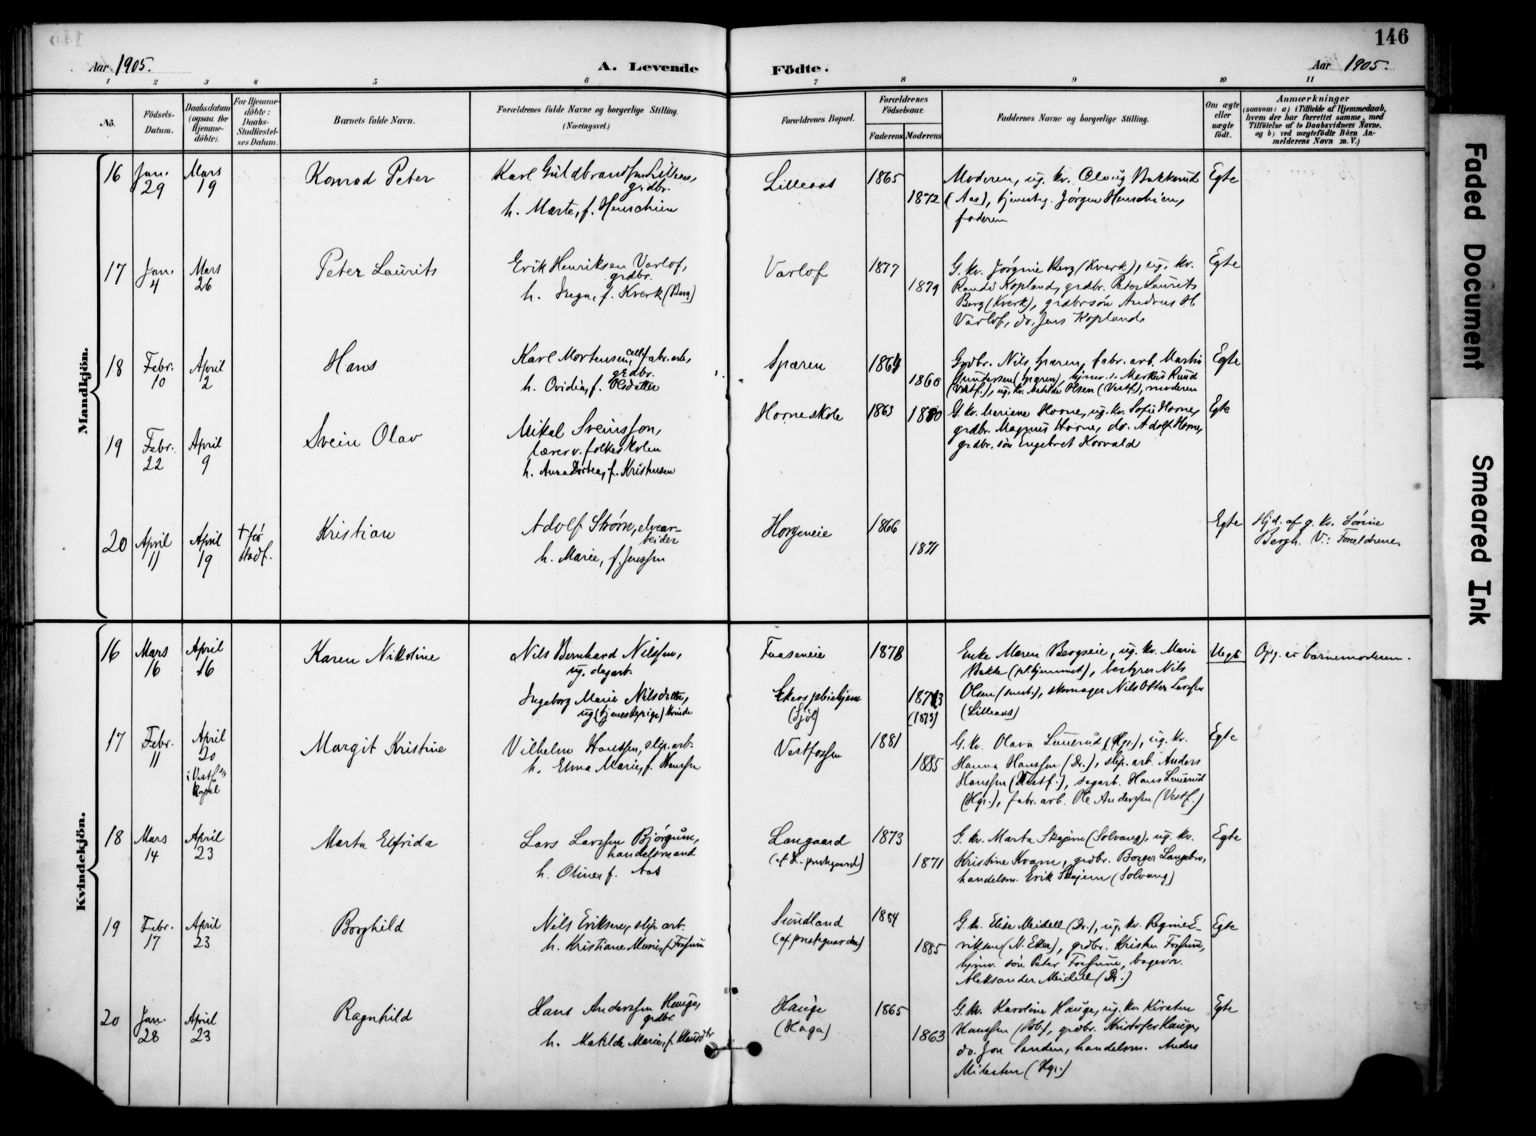 146
Aar 1905.
A. Levende Födte.
Aar 1905.
1 2 3 4 5 6 7 8 9 10 11
No.
Födsels-
Datum.
Daabsdatum
(ogsaa for
Hjemme-
döbte).
For Hjemme-
döbte:
Daabs-
Stadfæstel-
ses Datum.
Barnets fulde Navn.
Forældrenes fulde Navne og borgerlige Stilling.
(Næringsvei.)
Forældrenes Bopæl.
Forældrenes
Födselsaar.
Faderens
Moderens
Faddernes Navne og borgerlige Stilling.
Om ægte
eller
uægte
födt.
Anmærkninger
(saasom: a) i Tilfælde af Hjemmedaab,
hvem der har forrettet samme, med
Tilföielse af to Daabsvidners Navne,
og b) ved uægtefödte Börn An-
melderens Navn m. V.)
Mandkjön.
16 Jan. 29 Mars 19 Konrad Peter
Karl Guldbrandsen Lilleaas,
grdbr.
h. Marte, f. Henschien
Lilleaas 1865 1872
Moderen, ug. kv. Bakkerud
(Aas), Jørgen Henschien,
faderen
Egte
17 Jan. 4 Mars 26 Peter Laurits
Erik Henriksen Varlof,
grdbr.
h. Inga, f. Kverk (Berg)
Varlof 1877 1879
G. kv. Jørgine Berg (Kverk), ug. kv.
Randi Kopland, grdbr. Peter Laurits
Berg (Kverk), grdbrsön Andreas H.
Varlof, do. Jens Kopland
Egte
18 Febr. 10 April 2 Hans
Karl Mortensen, cell. fabr. arb.,
grdbr.
h. Ovidia, f. Olsdatter
Sparen 1864 1860
Grdbr. Nils Sparen, fabr. arb. Martin
Gundersen (Sparen), Markus Ruud
(Vestf.), ug. kv. Matilde Olsen (Vestf.), moderen
Egte
19 Febr. 22 April 9 Svein Olav
Mikal Sveinssøn,
lærer v. folkeskolen
h. Anna Dortea, f. Kristensen
Horneskole 1863 1880
G. kv. Mariane Horne, ug. kv. Sofie Horne,
grdbr. Magnus Horne, do. Adolf Horne,
grdbr. sön Engebret Korvald
Egte
20 April 11 April 19 † før
stadf.
Kristian
Adolf Strøm, elvear-
beider
h. Marie, f. Jenssen
Horgeneie 1866 1871
Egte
Hjd. af g. kv. Sørine
Bergh. V.: Forældrene
Kvindekjön.
16 Mars 16 April 16 Karen Nikoline
Nils Bernhard Nilssen,
ug. dagarb.
Ingeborg Marie Nilsdatter,
ug. (tjenestepige) kvinde
Faaseneie 1878
Ekers pleiehjem
1873
(1873)
Enke Maren Bergseie, ug. kv. Marie
Bakke (pleihjemmet), bestyrer Nils
Olsen, skomager Nils Otter Larssen
(Lilleaas)
Uegte
Opg. er barnemoderen.
17 Febr. 11 April 20
i Vestf.
kapel
Margit Kristine
Vilhelm Hanssen, slip. arb.
h. Elma Marie, f. Hanssen
Vestfossen 1881 1885
G. kv. Olava Luuerud (Hgr.), ug. kv.
Hanna Hanssen (Dr.), slip. arb. Anders
Hanssen (Vestf.), sagarb. Hans Luuerud
(Hgr.), fabr. arb. Ole Anderssen (Vestf.)
Egte
18 Mars 14 April 23 Marta Elfrida
Lars Larssen Bjørgum,
handelsmand
h. Oline, f. Aas
Langaard
(af prestgaard)
1873 1871
G. kv. Marta Skajem (Solvang), ug. kv.
Kristine Kvam, grdbr. Borger Langebro,
handelsm. Erik Skajem (Solvang)
Egte
19 Febr. 17 April 23 Borghild
Nils Eriksen, slip. arb.
h. Kristiane Marie, f. Fossum
Sundland
(af prestgaarden)
1884 1885
G. kv. Elise Meidell (Dr.), ug. kv. Regine E-
riksen (N. Eker), grdbr. Kristen Fossum,
sön Peter Fossum, bagersv.
Aleksander Meidell (Dr.)
Egte
20 Jan. 28 April 23 Ragnhild
Hans Anderssen Hauge,
grdbr.
h. Matilde Marie, f. Klausdtr.
Hauge
(Haga)
1865 1863
G. kv. Karoline Hauge, ug. kv. Kirstine
Hanssen, grdbr. Kristofer Hauge,
do. Jon Sanden, handelsm. Anders
Milesten (Hgr.)
Egte
Faded Document
Smeared Ink